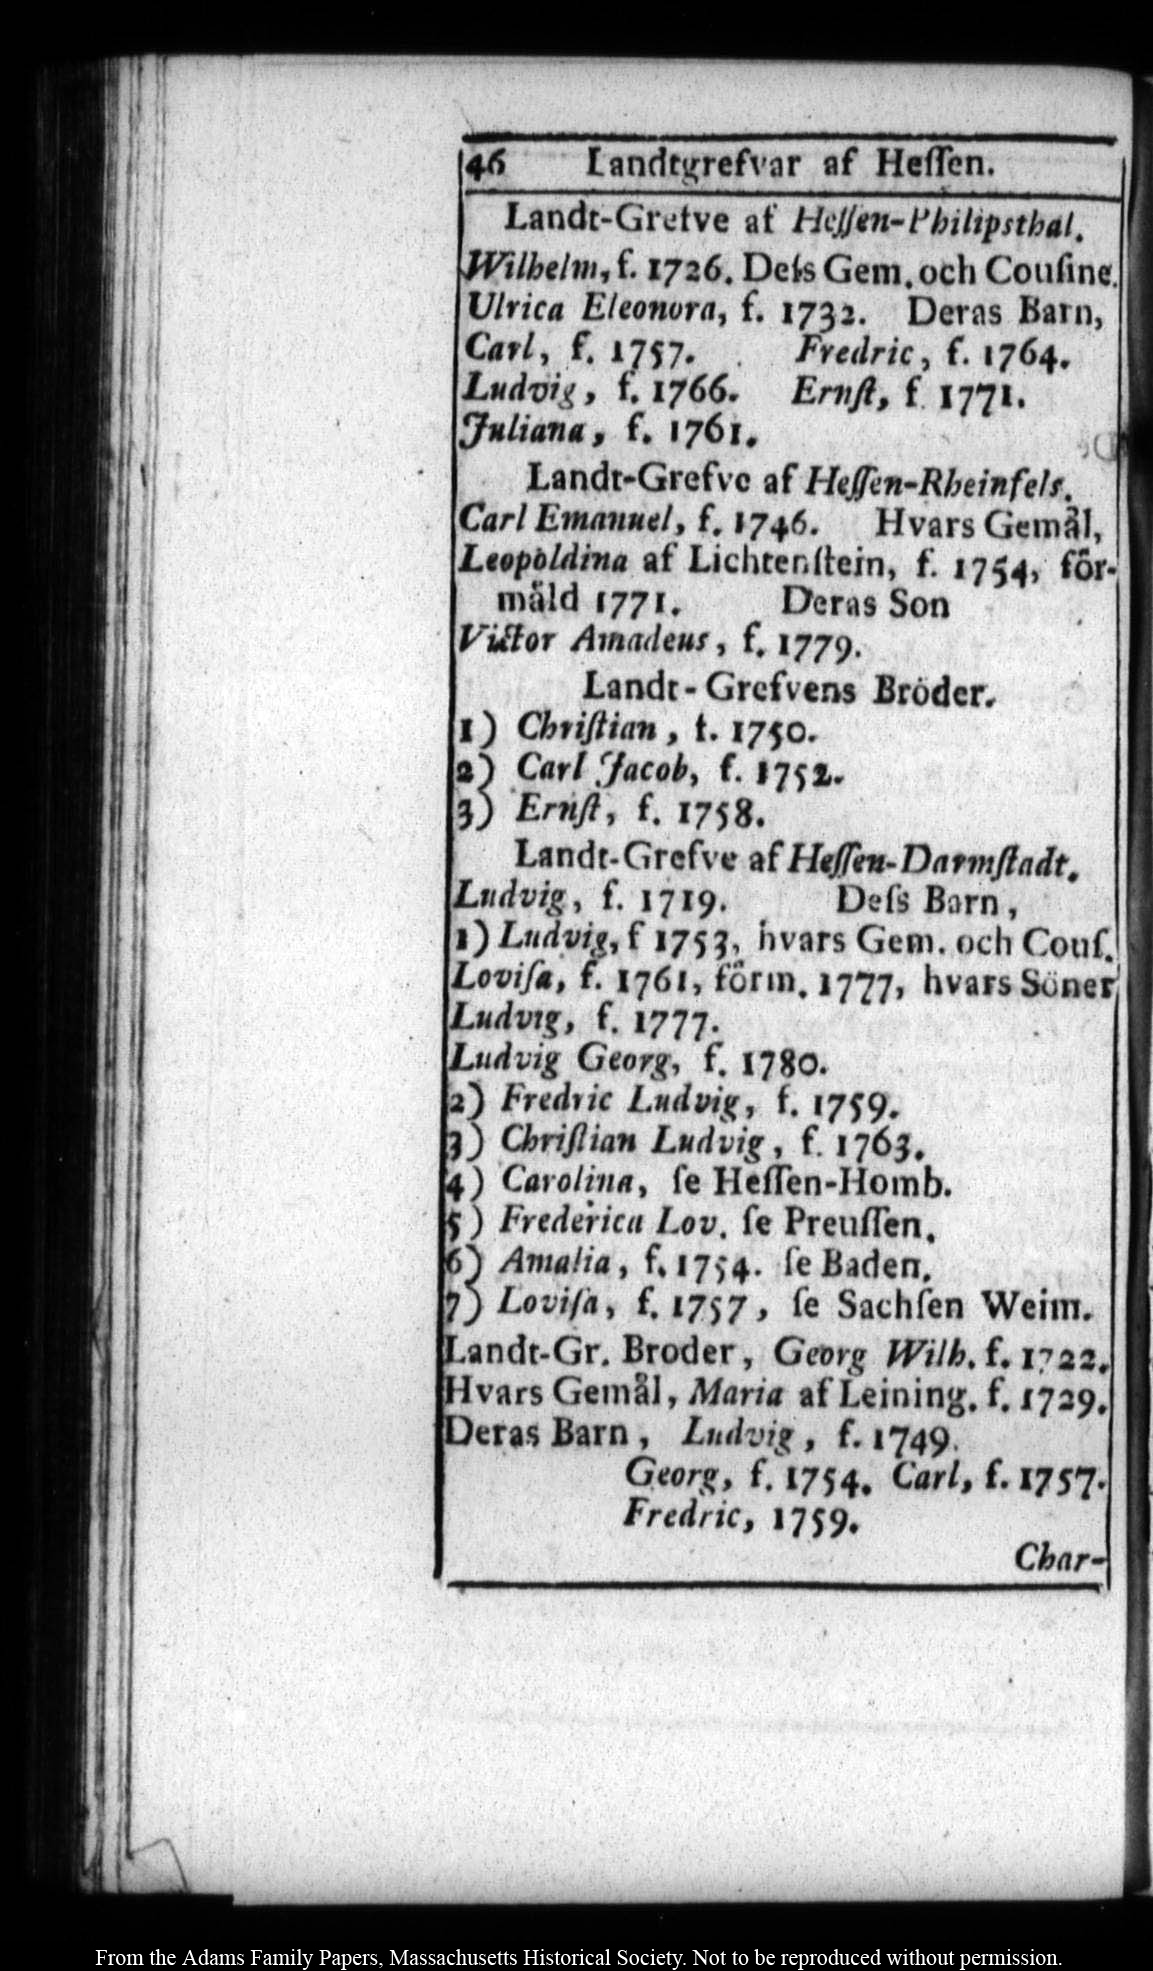 46 Landtgrefvar af Heſſen.
Landt-Grefve af Heſſen-Philipsthal.
Wilhelm, f. 1726. Deſs Gem. och Couſine.
Ulrica Eleonora, f. 1732. Deras Barn,
Carl, f. 1757. Fredric, f. 1764.
Ludvig, f. 1766. Ernſt, f. 1771.
Juliana, f. 1761.
Landt-Grefve af Heſſen-Rheinfels.
Carl Emanuel, f. 1746. Hvars Gemål,
Leopoldina af Lichtenſtein, f. 1754, för-
måld 1771. Deras Son
Victor Amadeus, f. 1779.
Landt-Grefvens Bröder.
1) Chriſtian, f. 1750.
2) Carl Jacob, f. 1752.
3) Ernſt, f. 1758.
Landt-Grefve af Heſſen-Darmſtadt.
Ludvig, f. 1719. Deſs Barn,
1) Ludvig, f 1753, hvars Gem. och Couſ.
Loviſa, f. 1761, förm. 1777, hvars Söner
Ludvig, f. 1777.
Ludvig Georg, f. 1780.
2) Fredric Ludvig, f. 1759.
3) Chriſtian Ludvig, f. 1763.
4) Carolina, ſe Heſſen-Homb.
5) Frederica Lov. ſe Preuſſen.
6) Amalia, f. 1754. ſe Baden.
7) Loviſa, f. 1757, ſe Sachſen Weim.
Landt-Gr. Broder, Georg Wilh. f. 1722.
Hvars Gemål, Maria af Leining. f. 1729.
Deras Barn, Ludvig, f. 1749.
Georg, f. 1754. Carl, f. 1757.
Fredric, 1759.
Char-
From the Adams Family Papers, Massachusetts Historical Society. Not to be reproduced without permission.